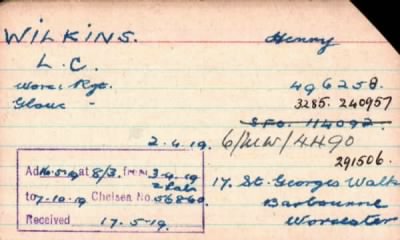 WILKINS. Henry
L. C.
Worc. Rgt. 496258.
Glouc - 3285. 240957
SFO. 114092.
2.4.19. 6/MW/4490
291506.
Adm 16-5-19 at 8/3. from 3-4-19
to 7-10-19 Chelsea No. 56860.
17. St. Georges Walk
Barbourne
Received 17.5.19. Worcester